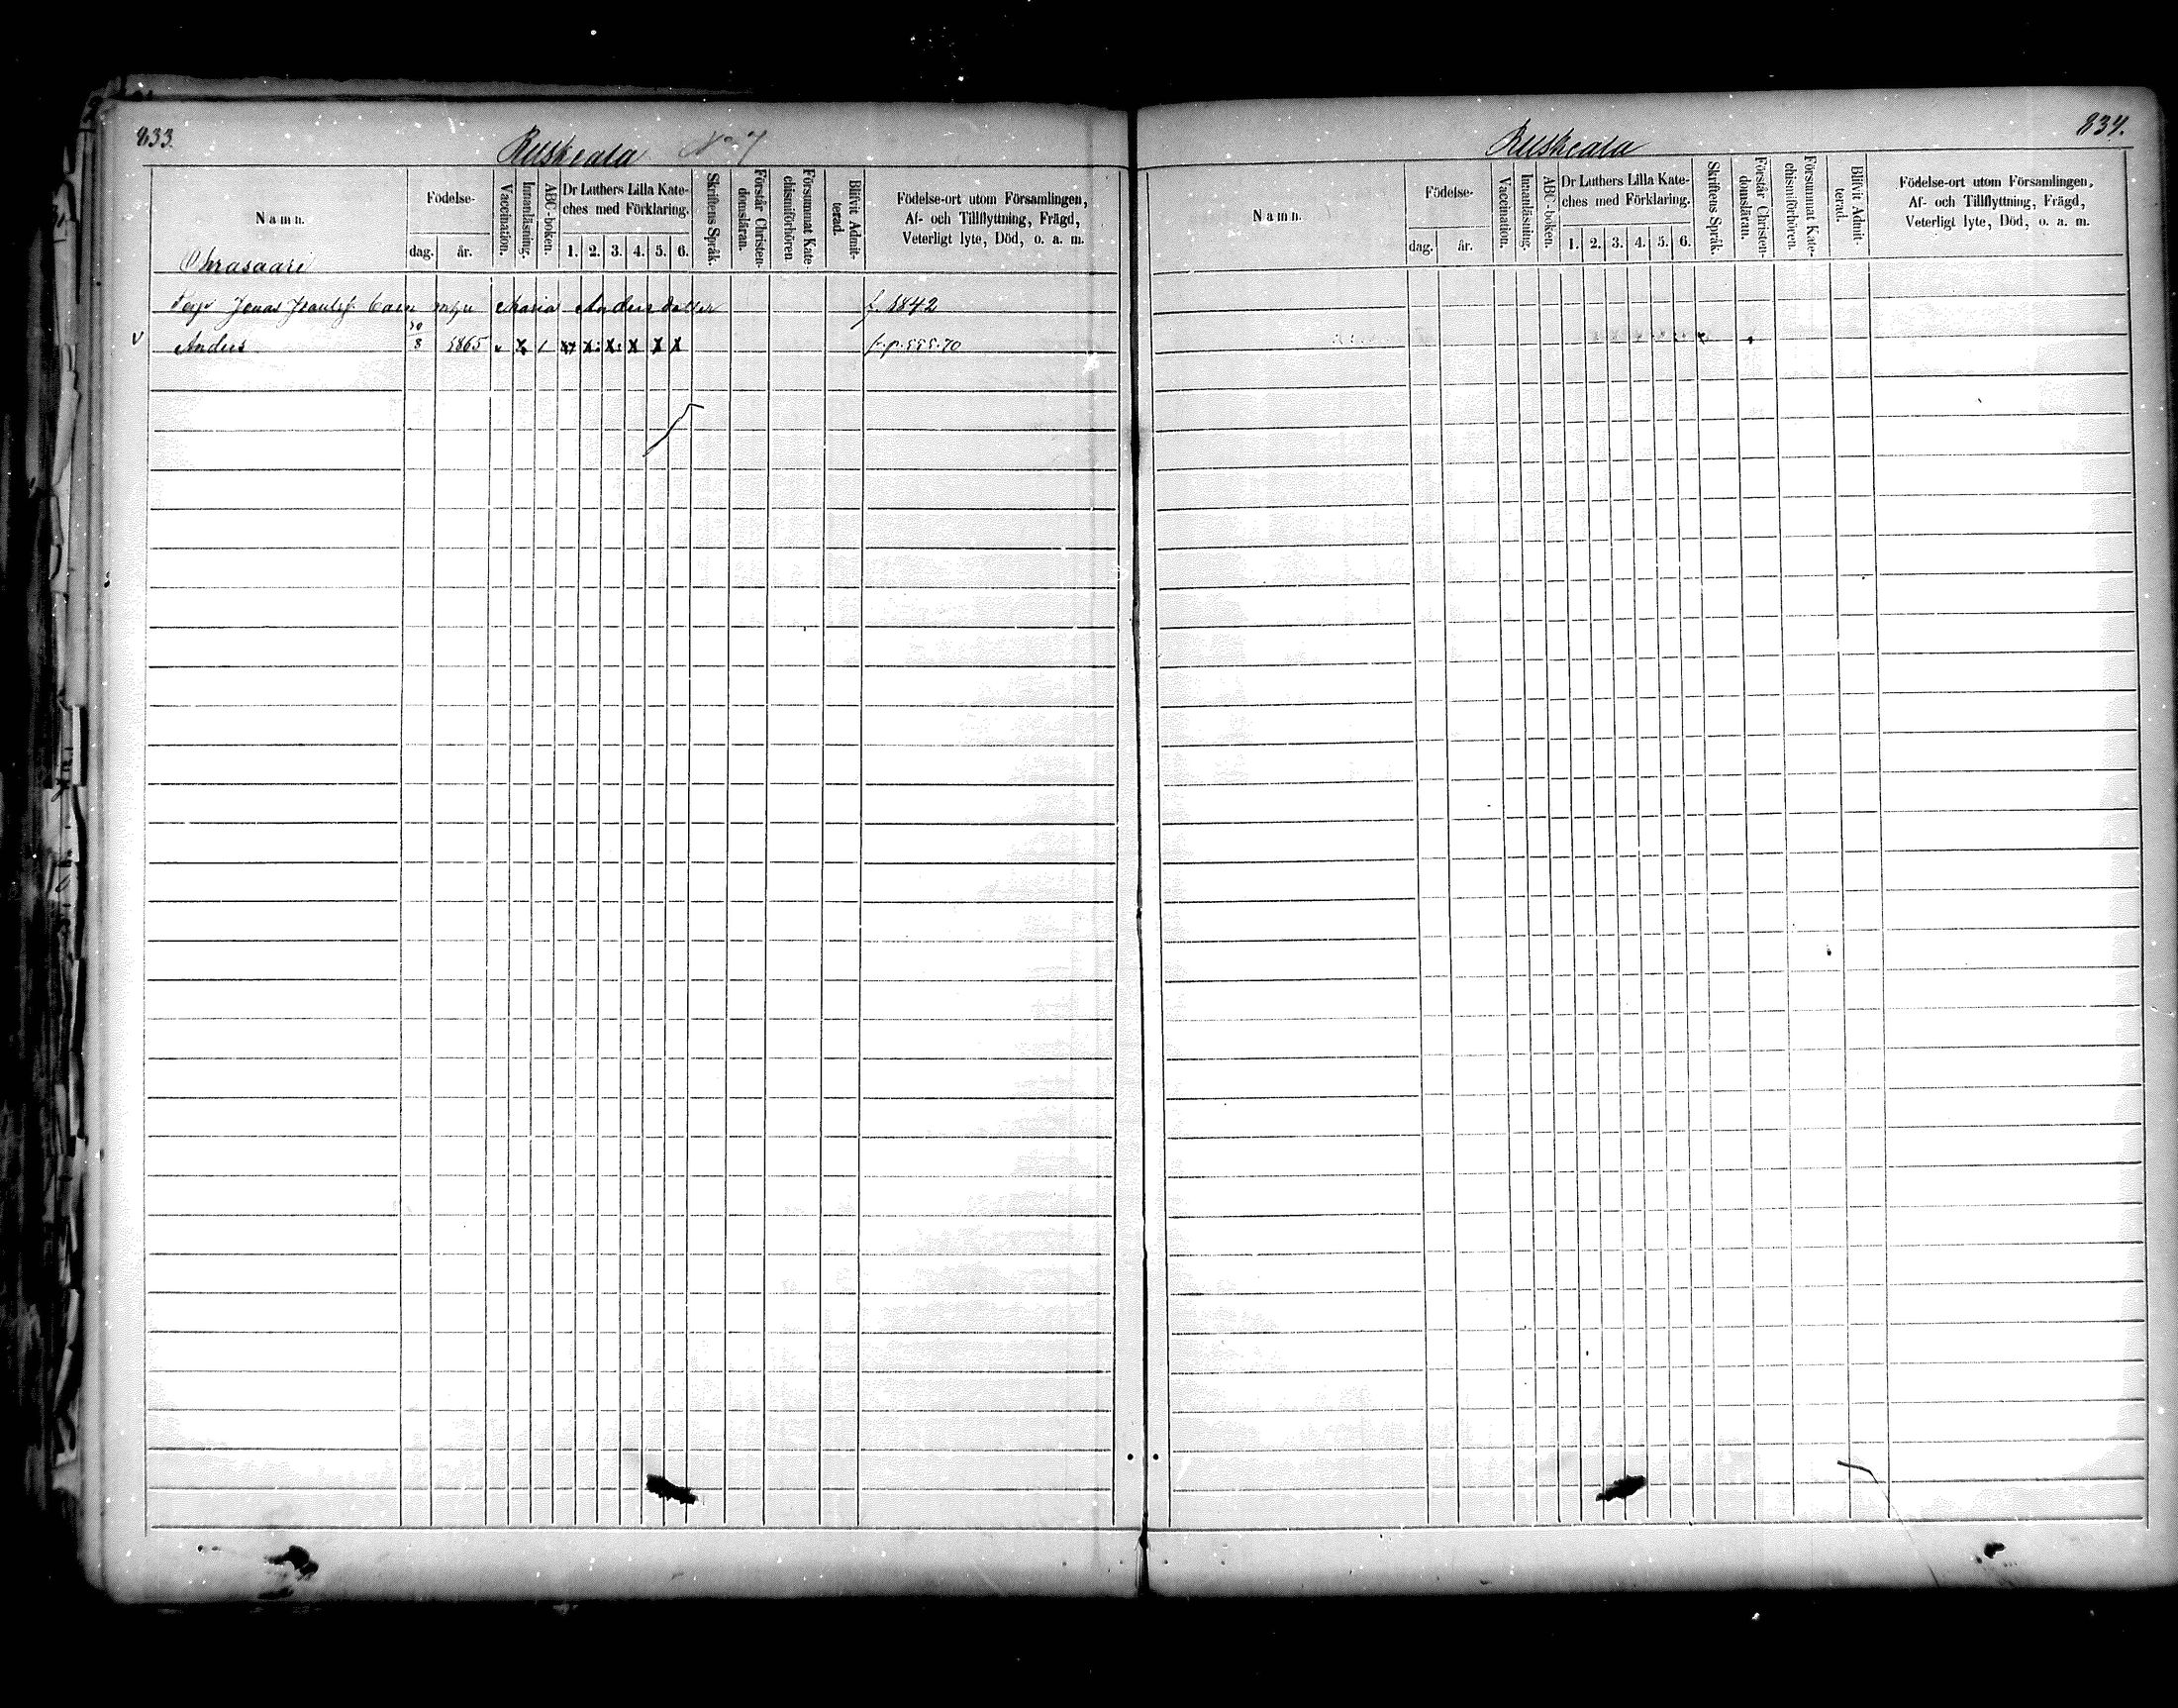 833.
Ruskeala No 7
Namn.
Födelse-
dag. år.
Vaccination.
Innanläsning.
ABC-boken.
Dr Luthers Lilla Kate-
ches med Förklaring.
1. 2. 3. 4. 5. 6.
Skriftens Språk.
Förstår Christen-
domsläran.
Försummat Kate-
chismiförhören.
Blifvit Admit-
terad.
Födelse-ort utom Församlingen,
Af- och Tillflyttning, Frägd,
Veterligt lyte, Död, o. a. m.
Ohrasaari
Jonas Paulsf. Maria Andersdotter f. 1842
v Anders 30/8 1865 f. p. 555.70
834.
Ruskeala
Namn.
Födelse-
dag. år.
Vaccination.
Innanläsning.
ABC-boken.
Dr Luthers Lilla Kate-
ches med Förklaring.
1. 2. 3. 4. 5. 6.
Skriftens Språk.
Förstår Christen-
domsläran.
Försummat Kate-
chismiförhören.
Blifvit Admit-
terad.
Födelse-ort utom Församlingen,
Af- och Tillflyttning, Frägd,
Veterligt lyte, Död, o. a. m.